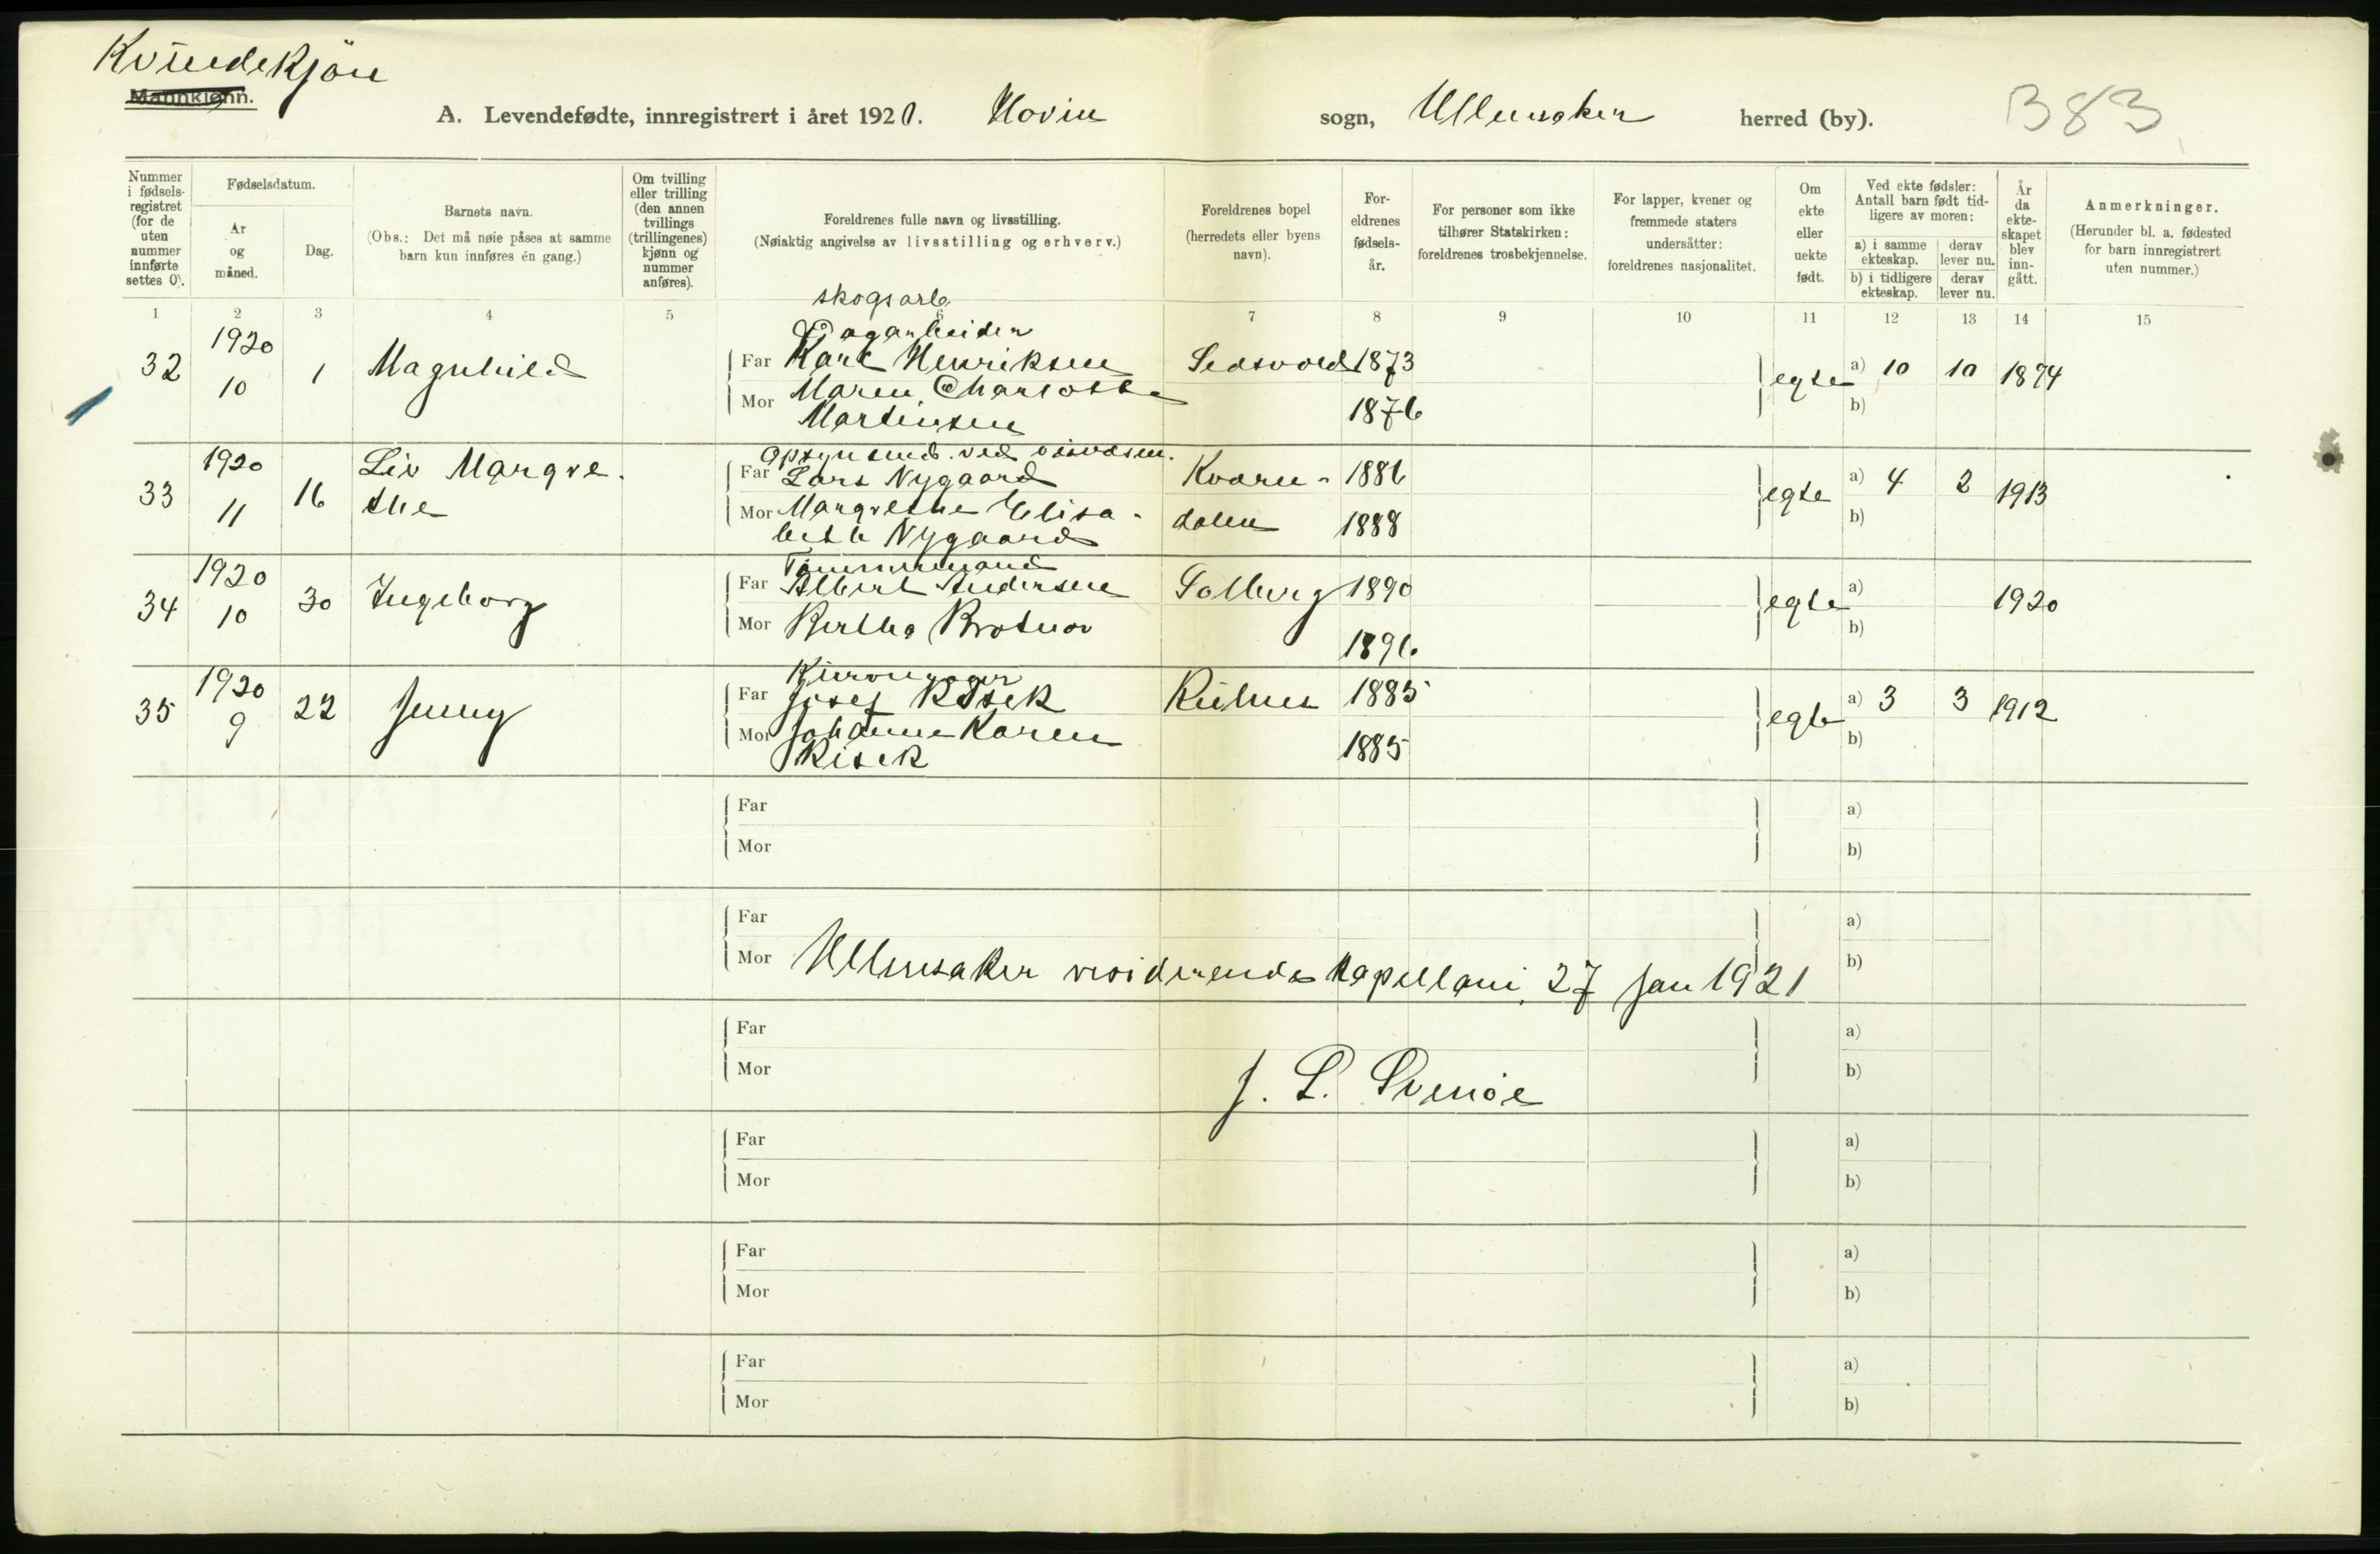 Kvindekjön
Mannkjønn.
A. Levendefødte, innregistrert i året 1920. Hovin sogn, Ullensaker herred (by). 383
Nummer i fødselsregistret (for de uten nummer innførte settes 0).
Fødselsdatum.
År og måned.
Dag.
Barnets navn.
(Obs.: Det må nøie påses at samme barn kun innføres én gang.)
Om tvilling eller trilling (den annen tvillings (trillingenes) kjønn og nummer anføres).
Foreldrenes fulle navn og livsstilling.
(Nøiaktig angivelse av livsstilling og erhverv.)
Foreldrenes bopel (herredets eller byens navn).
Foreldrenes fødselsår.
For personer som ikke tilhører Statskirken: foreldrenes trosbekjennelse.
For lapper, kvener og fremmede staters undersåtter: foreldrenes nasjonalitet.
Om ekte eller uekte født.
Ved ekte fødsler: Antall barn født tidligere av moren:
a) i samme ekteskap. derav lever nu.
b) i tidligere ekteskap. derav lever nu.
År da ekteskapet blev inngått.
Anmerkninger.
(Herunder bl. a. fødested for barn innregistrert uten nummer.)
1 2 3 4 5 6 7 8 9 10 11 12 13 14 15
skogsarb
Dagarbeider
32 1920 10 1 Magnhild Far Karl Henriksen Ledsvold 1873 egte a) 10 10 1894
Mor Maren Charlotte 1876 b)
Martinsen
Opsynsmd. ved
33 1920 11 16 Liv Margre- Far Lars Nygaard Kværn- 1886 egte a) 4 2 1913
the Mor Margrethe Elisa- dalen 1888 b)
beth Nygaard
Tømmermand
34 1920 10 30 Ingeborg Far Albert Andersen Solberg 1890 egte a) 1920
Mor Bertha Brotnov 1896 b)
Kurvmager
35 1920 9 22 Jenny Far Josef Risek 1885 egte a) 3 3 1912
Mor Johanne Karen 1885 b)
Risek
Far a)
Mor b)
Far a)
Mor Ullensaker residerende kapellani, 27 jan 1921 b)
Far a)
Mor J. L. b)
Far a)
Mor b)
Far a)
Mor b)
Far a)
Mor b)